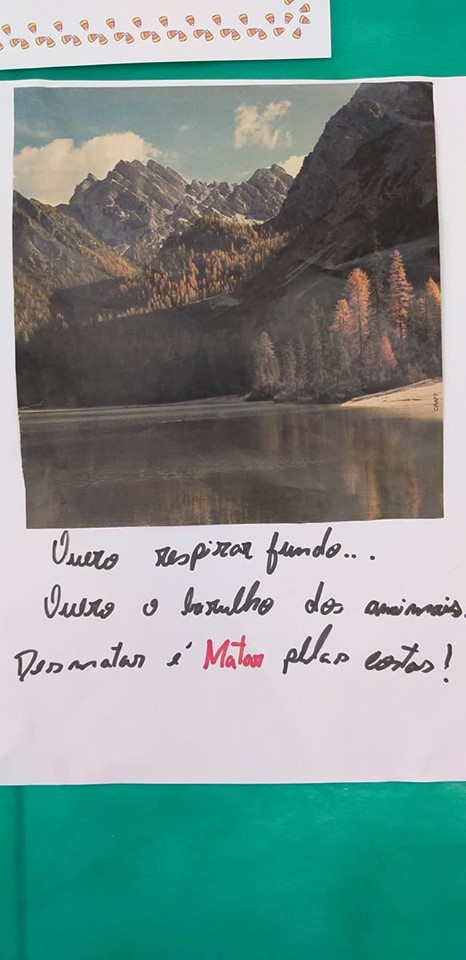 CRAFT
Quero respirar fundo...
Quero o barulho dos animais.
Desmatar é Matar pelas costas!